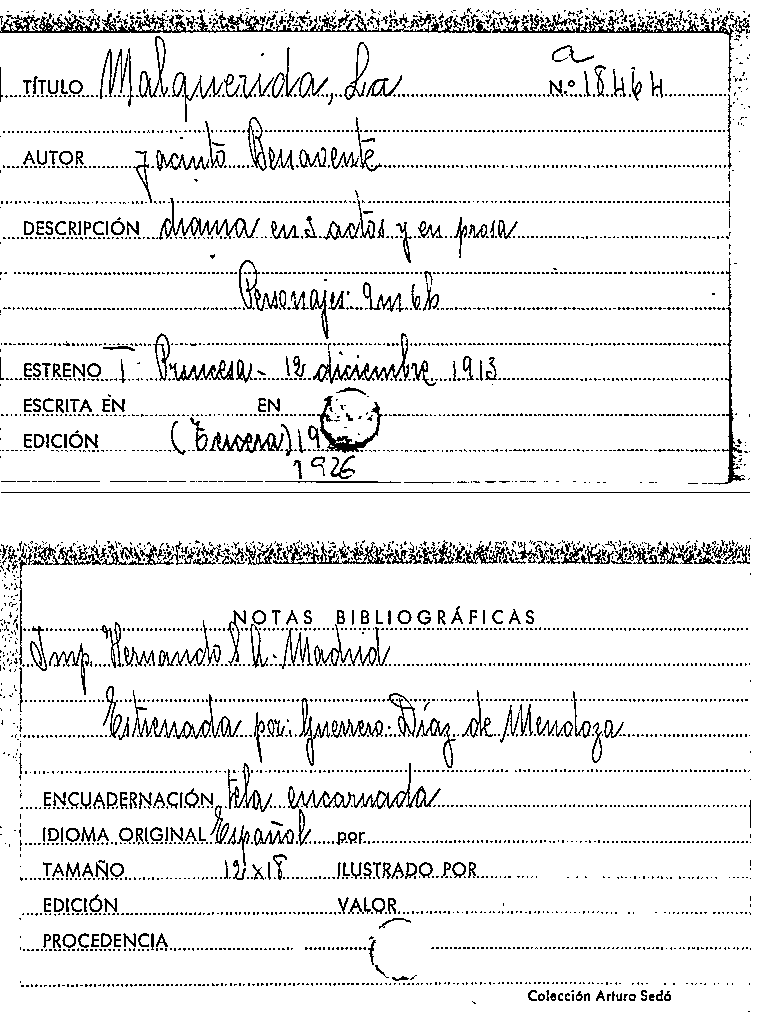 a
TÍTULO Malquerida, La N.º 18464
AUTOR Jacinto Benavente
DESCRIPCIÓN drama en 3 actos y en prosa
Personajes: 9m 6h
ESTRENO T. Princesa - 12 diciembre 1913
ESCRITA EN EN
EDICIÓN (Tercera)
1926
NOTAS BIBLIOGRÁFICAS
Imp. Hernando S.A. - Madrid
Estrenada por: Guerrero - Díaz de Mendoza
ENCUADERNACIÓN tela encarnada
IDIOMA ORIGINAL Español por
TAMAÑO 12x18 ILUSTRADO POR
EDICIÓN VALOR
PROCEDENCIA
Colección Arturo Sedó